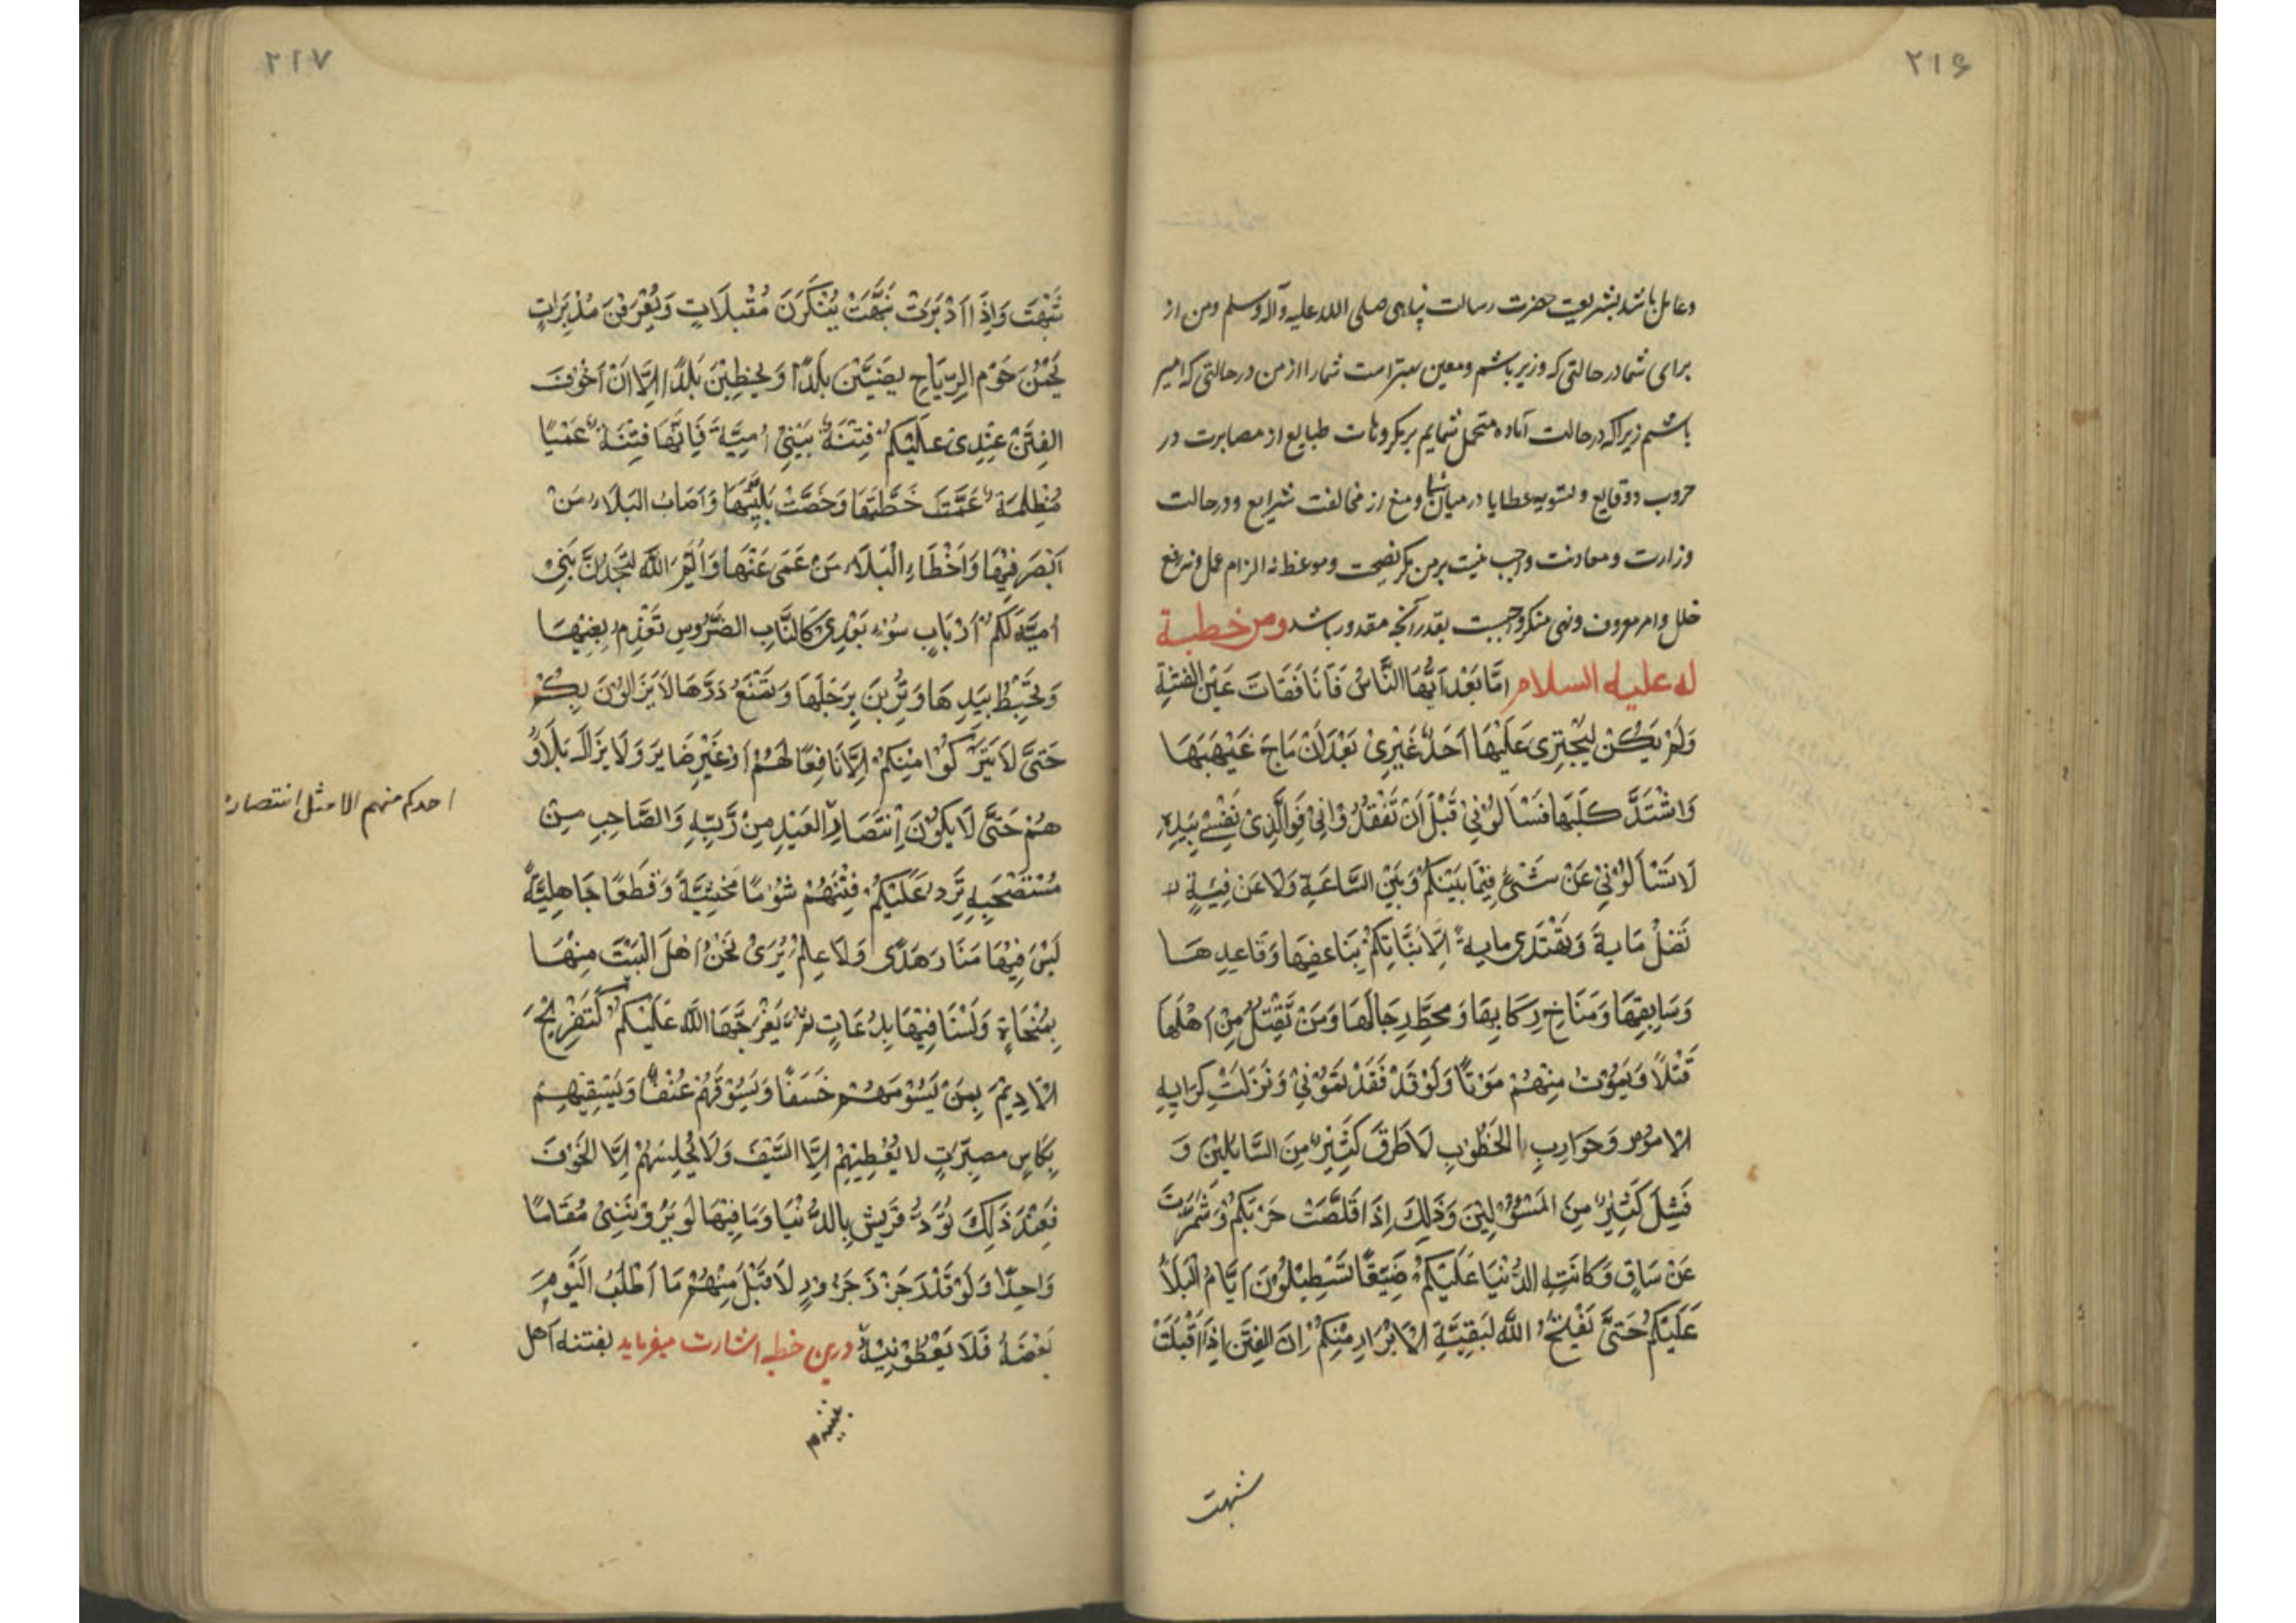 ۲۱۶
وعامل باشد بشریعت حضرت رسالت پناهی صلی الله علیه وآله وسلم ومن از
برای شما در حالتی که وزیر باشم ومعین بهتر است شما را از من در حالتی که امیر
باشم زیرا که در حالت آماده متحمل شمایم بر مکروهات طبایع از مصابرت در
حروب ووقایع وتسویه عطایا در میان شما ومنع از مخالفت شرایع ودر حالت
وزارت ومعاونت واجب نیست بر من مگر نصیحت وموعظه نه الزام عمل ونه رفع
خلل وامر معروف ونهی منکر واجبست بقدر آنچه مقدور باشد ومن خطبة
له علیه السلام اَمَّا بَعْدُ اَیُّهَا النَّاسُ فَاَنَا فَقَاتُ عَیْنَ الفِتْنَةِ
وَلَمْ یَكُنْ لِیَجْتَرِی عَلَیْهَا اَحَدٌ غَیْرِیْ بَعْدَ اَنْ مَاجَ غَیْهَبُهَا
وَاشْتَدَّ كَلَبُهَا فَسْاَلُوْنِیْ قَبْلَ اَنْ تَفْقُدُوْانِیْ فَوَالَّذِیْ نَفْسِیْ بِیَدِهِ
لَا تَسْاَلُوْنِیْ عَنْ شَیْءٍ فِیْمَا بَیْنَكُمْ وَبَیْنَ السَّاعَةِ وَلَا عَنْ فِیَةٍ
تَضِلُّ مَایةً وَیَهْتَدِی مایةً اِلَّا نَبَّاتُكُمْ بِنَاعِقِهَا وَقَاعِدِهَا
وَسَایِقِهَا وَمَنَاخِ رِكَابِهَا وَمَحَطِّ رِحَالِهَا وَمَنْ یَقْتُلُ مِنْ اَهْلِهَا
قَتْلًا وَیَمُوْتُ مِنْهُمْ مَوْتًا وَلَوْ قَدْ فَقَدْتُمُوْنِیْ وَنَزَلَتْ كَرَایِهِ
الْامُوْرِ وَحَوَازِبِ الْخُطُوْبِ لَاَطْرَقَ كَثِیْرٌ مِنَ السَّایلِیْنَ وَ
فَشِلَ كَثِیْرٌ مِنَ المَسْؤُلِیْنَ وَذَلِكَ اِذَا قَلَّصَتْ حَرْبُكُمْ وَشَمَّرَتْ
عَنْ سَاقٍ وَكَانَتِ الدُّنْیَا عَلَیْكُمْ ضَیِّقًا تَسْتَطِیْلُوْنَ اَیَّامَ الْبَلَاءِ
عَلَیْكُمْ حَتَّی یَفْتَحُ اللّٰهُ لِبَقِیَّةِ الْاَبْرَارِ مِنْكُمْ اِنَّ الفِتَنَ اِذَا اَقْبَلَتْ
شبهت
۲۱۷
شَبَّهَتْ وَاِذَا اَدْبَرَتْ نَبَّهَتْ یُنْكَرْنَ مُقْبِلَاتٍ وَیُعْرَفْنَ مُدْبِرَاتٍ
یَحُمْنَ حَوْمَ الرِّیَاحِ یصِبْنَ بَلَدًا وَیُخْطِیْنَ بَلَدًا اِلَّا اِنَّ اَخْوَفَ
الفِتَنِ عِنْدِیْ عَلَیْكُمْ فِتْنَةُ بَنِیْ اُمَیَّةَ فَاِنَّهَا فِتْنَةٌ عَمْیَا
مُظْلِمَةٌ عَمَّتْ خَطَّتُهَا وَخَصَّتْ بَلِیَّتُهَا وَاَصَابَ البَلَاءُ مَنْ
اَبْصَرَ فِیْهَا وَاَخْطَاءَ الْبَلَاءُ مَنْ عَمَیَ عَنْهَا وَاَیْمُ اللّٰهِ لَتَجِدُنَّ بَنِیْ
اُمَیَّةَ لَكُمْ اَرْبَابَ سُوْءٍ بَعْدِیْ كَالنَّابِ الضَّرُوْسِ تَعْذِمُ بِفِیْهَا
وَتَخْبِطُ بِیَدِهَا وَتَزْبِنُ بِرِجْلِهَا وَتَمْنَعُ دَرَّهَا لَا یَزَالُوْنَ بِكُمْ
حَتَّی لَا یَتْرُكُوْا مِنْكُمْ اِلَّا نَافِعًا لَهُمْ اَوْ غَیْرَ ضَایِرٍ وَلَا یَزَالُ بَلَاؤُ
هُمْ حَتَّی لَا یَكُوْنَ اِنْتِصَارُ العَبْدِ مِنْ رَبِّهِ وَالصَّاحِبِ مِنْ
احدكم منهم الا مثل انتصار
مُسْتَصْحَبِهِ تَرِدُ عَلَیْكُمْ فِتْنَتُهُمْ شَوْمًا مَخْشِیَّةً وَقِطَعًا جَاهِلِیَّةً
لَیْسَ فِیْهَا مَنَارُ هُدًی وَلَا عِلمٌ یُرَیٰ نَحْنُ اَهْلَ الْبَیْتِ مِنْهَا
بِمَنْجَاةٍ وَلَسْنَا فِیْهَا بِدُعَاتٍ ثُمَّ یُفَرِّجُهَا اللّٰهُ عَلَیْكُمْ كَتَفْرِیْجِ
الْاَدِیْمِ بِمَنْ یَسُوْمُهُمْ خَسَفًا وَیَسُوْقُهُمْ عُنْفًا وَیَسْقِیْهِمْ
بِكَاسٍ مصبَّرَةٍ لا یُعْطِیْهِمْ اِلَّا السَّیْفَ وَلَا یُحْلِسُهُمْ اِلَّا الْخَوْفَ
فَعِنْدَ ذَلِكَ تُوَدُّ قُرَیْشٌ بِالدُّنْیَا وَمَا فِیْهَا لَوْ یَرَوْنَنِیْ مُقَامًا
وَاحِدًا وَلَوْ قَدْرَ جَزْرِ جَزُوْرٍ لَاَقْبَلَ مِنْهُمْ مَا اَطْلُبُ الْیَوْمَ
بَعْضَهُ فَلَا یُعْطُوْنِیْهِ درین خطبه اشارت میفرماید بفتنه اهل